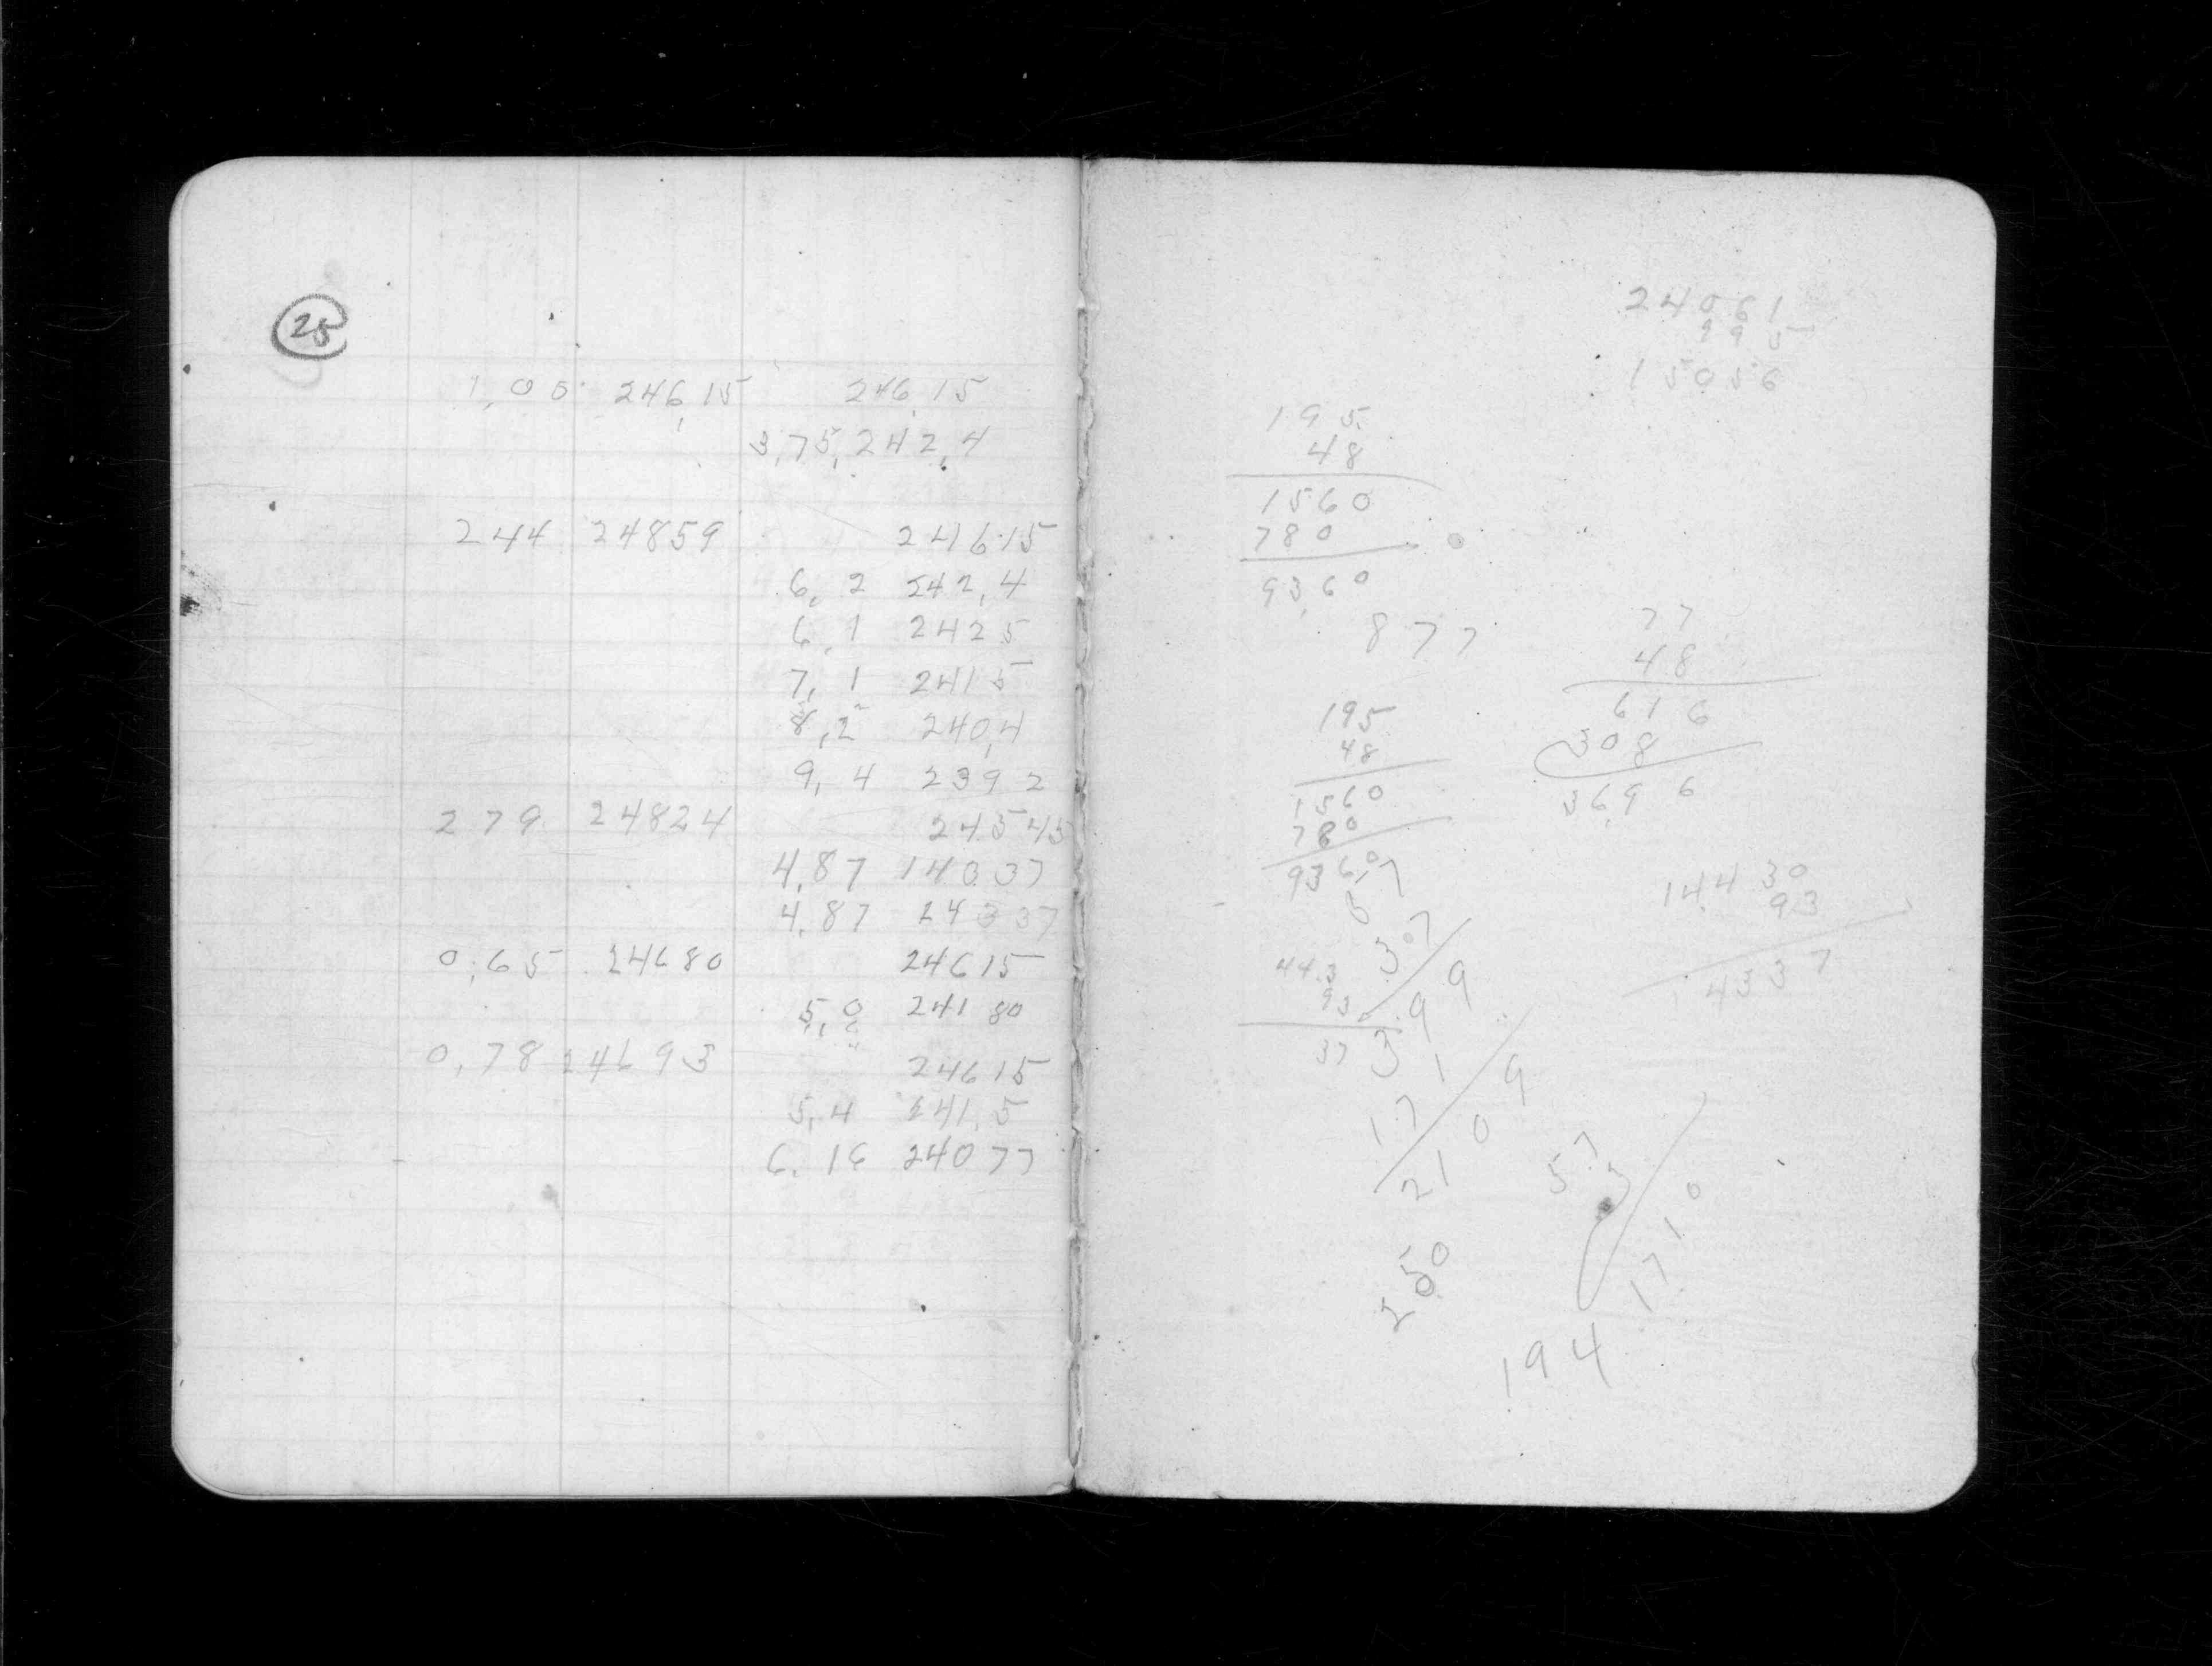 25
1,00 246,15 246,15
3,75, 242,4
244 24859 246.15
6,2 242,4
6,1 2425
7,1 2415
8,2 240,4
9,4 2392
279 24824 24545
4,87 14037
4,87 24337
0,65 24680 24615
5,0 24180
0,78 24693
24615
5,4 241,5
6,16 24077
24061
995
15056
195
48
1560
780
93,60
877
77
48
616
308
36,96
195
48
1560
780
936,0
14,430
93
4337
443
93
37
307
399
17
2109
57
1710
250
194